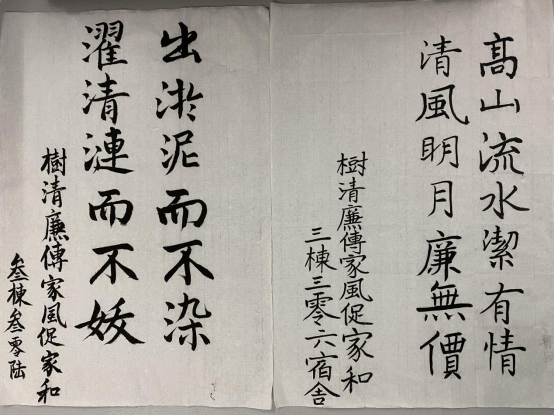 髙山流水潔有情
清風明月廉無價
樹清廉傳家風促家和
三棟三零六宿舍
出淤泥而不染
濯清漣而不妖
樹清廉傳家風促家和
叁棟叁零陸